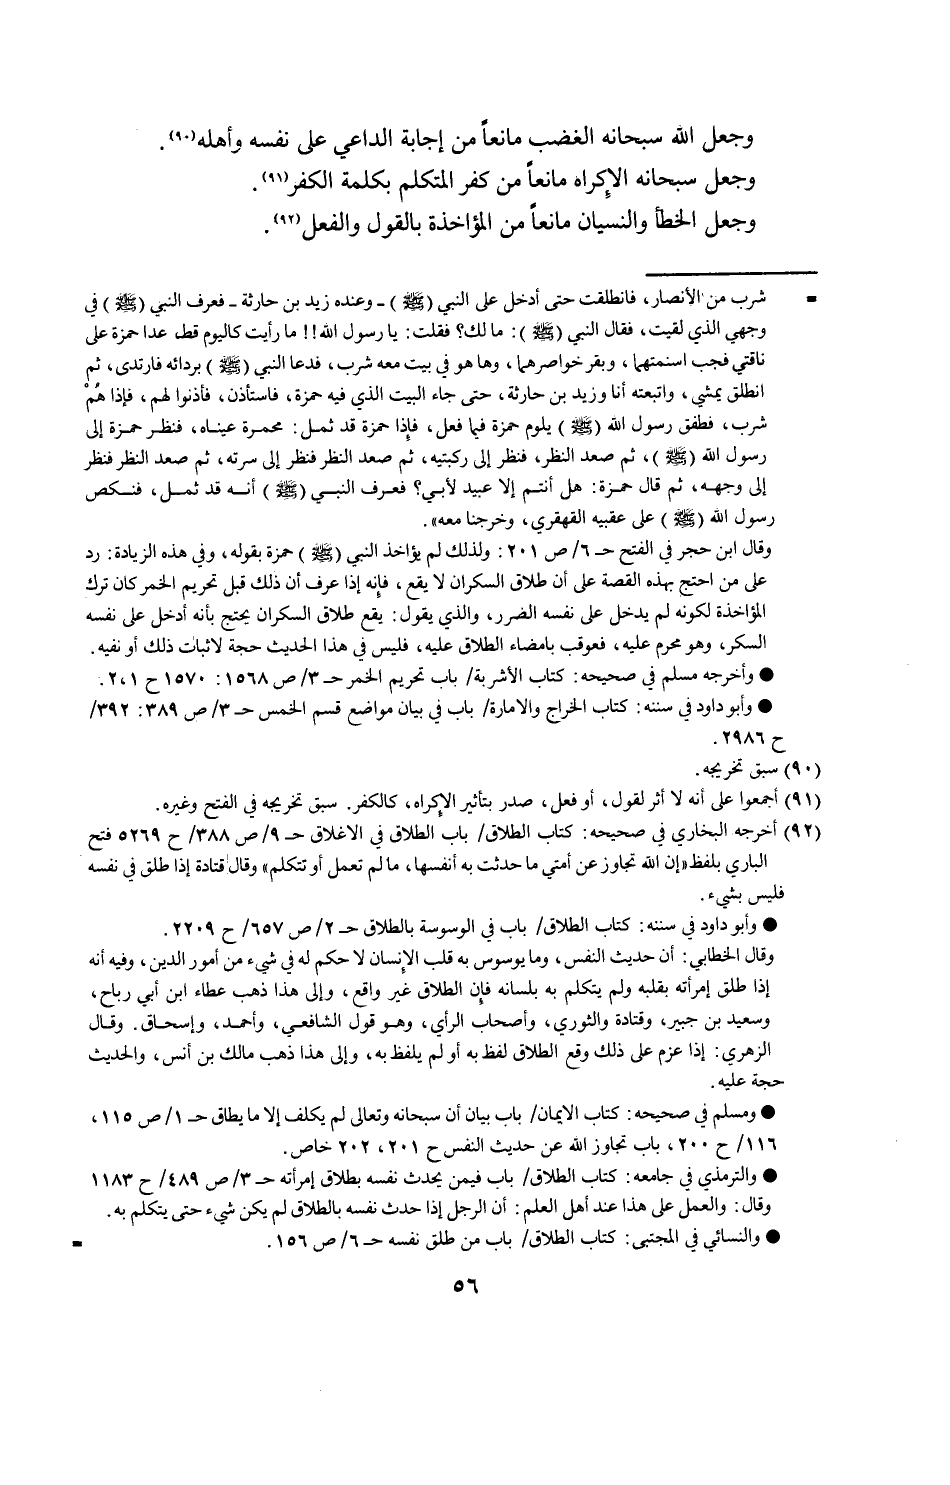 وجعل الله سبحانه الغضب مانعاً من إجابة الداعي على نفسه وأهله(٩٠).
وجعل سبحانه الإكراه مانعاً من كفر المتكلم بكلمة الكفر(٩١).
وجعل الخطأ والنسيان مانعاً من المؤاخذة بالقول والفعل(٩٢).
= شرب من الأنصار، فانطلقت حتى أدخل على النبي (ﷺ) ـ وعنده زيد بن حارثة ـ فعرف النبي (ﷺ) في
وجهي الذي لقيت، فقال النبي (ﷺ): ما لك؟ فقلت: يا رسول الله!! ما رأيت كاليوم قط، عدا حمزة على
ناقتي فجب اسنمتهما، وبقر خواصرهما، وها هو في بيت معه شرب، فدعا النبي (ﷺ) بردائه فارتدى، ثم
انطلق يمشي، واتبعته أنا وزيد بن حارثة، حتى جاء البيت الذي فيه حمزة، فاستأذن، فأذنوا لهم، فإذا هُمْ
شرب، فطفق رسول الله (ﷺ) يلوم حمزة فيما فعل، فإذا حمزة قد ثمل: محمرة عيناه، فنظر حمزة إلى
رسول الله (ﷺ)، ثم صعد النظر، فنظر إلى ركبتيه، ثم صعد النظر فنظر إلى سرته، ثم صعد النظر فنظر
إلى وجهه، ثم قال حمزة: هل أنتم إلا عبيد لأبي؟ فعرف النبي (ﷺ) أنه قد ثمل، فنكص
رسول الله (ﷺ) على عقبيه القهقري، وخرجنا معه».
وقال ابن حجر في الفتح حـ ٦/ ص ٢٠١: ولذلك لم يؤاخذ النبي (ﷺ) حمزة بقوله، وفي هذه الزيادة: رد
على من احتج بهذه القصة على أن طلاق السكران لا يقع، فإنه إذا عرف أن ذلك قبل تحريم الخمر كان ترك
المؤاخذة لكونه لم يدخل على نفسه الضرر، والذي يقول: يقع طلاق السكران يحتج بأنه أدخل على نفسه
السكر، وهو محرم عليه، فعوقب بامضاء الطلاق عليه، فليس في هذا الحديث حجة لاثبات ذلك أو نفيه.
● وأخرجه مسلم في صحيحه: كتاب الأشربة/ باب تحريم الخمر حـ ٣/ ص ١٥٦٨: ١٥٧٠ ح ٢،١.
● وأبو داود في سننه: كتاب الخراج والامارة/ باب في بيان مواضع قسم الخمس حـ ٣/ ص ٣٨٩: ٣٩٢/
ح ٢٩٨٦.
(٩٠) سبق تخريجه.
(٩١) أجمعوا على أنه لا أثر لقول، أو فعل، صدر بتأثير الإكراه، كالكفر. سبق تخريجه في الفتح وغيره.
(٩٢) أخرجه البخاري في صحيحه: كتاب الطلاق/ باب الطلاق في الاغلاق حـ ٩/ ص ٣٨٨/ ح ٥٢٦٩ فتح
الباري بلفظ «إن الله تجاوز عن أمتي ما حدثت به أنفسها، ما لم تعمل أو تتكلم» وقال قتادة إذا طلق في نفسه
فليس بشيء.
● وأبو داود في سننه: كتاب الطلاق/ باب في الوسوسة بالطلاق حـ ٢/ ص ٦٥٧/ ح ٢٢٠٩.
وقال الخطابي: أن حديث النفس، وما يوسوس به قلب الإنسان لا حكم له في شيء من أمور الدين، وفيه أنه
إذا طلق إمرأته بقلبه ولم يتكلم به بلسانه فإن الطلاق غير واقع، وإلى هذا ذهب عطاء ابن أبي رباح،
وسعيد بن جبير، وقتادة والثوري، وأصحاب الرأي، وهو قول الشافعي، وأحمد، وإسحاق. وقال
الزهري: إذا عزم على ذلك وقع الطلاق لفظ به أو لم يلفظ به، وإلى هذا ذهب مالك بن أنس، والحديث
حجة عليه.
● ومسلم في صحيحه: كتاب الايمان/ باب بيان أن سبحانه وتعالى لم يكلف إلا ما يطاق حـ ١/ ص ١١٥،
١١٦/ ح ٢٠٠، باب تجاوز الله عن حديث النفس ح ٢٠١، ٢٠٢ خاص.
● والترمذي في جامعه: كتاب الطلاق/ باب فيمن يحدث نفسه بطلاق إمرأته حـ ٣/ ص ٤٨٩/ ح ١١٨٣
وقال: والعمل على هذا عند أهل العلم: أن الرجل إذا حدث نفسه بالطلاق لم يكن شيء حتى يتكلم به.
● والنسائي في المجتبى: كتاب الطلاق/ باب من طلق نفسه حـ ٦/ ص ١٥٦. =
٥٦